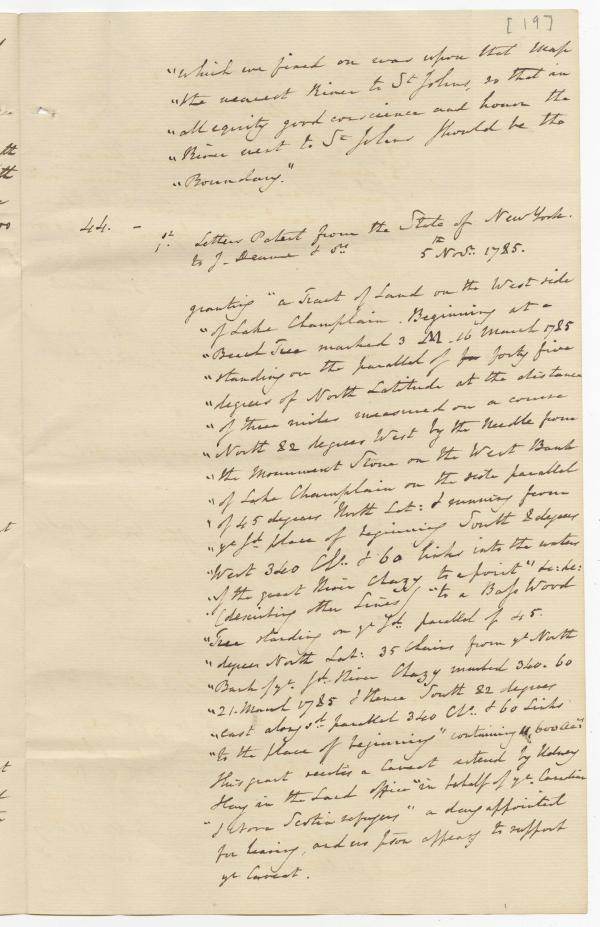 [19]
"which we fixed on was upon that map
"the nearest River to St Johns, so that in
"all equity good conscience and honor the
"River next to St Johns should be the
"Boundary."
44. - 1st. Letters Patent from the State of New York.
to J. Deanne & ors 5th Novr. 1785.
granting "a Tract of Land on the West side
"of Lake Champlain. Beginning at a
"Beech Tree marked 3 M. 16 March 1785
"standing on the parallel of forty five
"degrees of North Latitude at the distance
"of three miles measured on a course
"North 82 degrees West by the Needle from
"the Monument Stone on the West Bank
"of Lake Champlain on the parallel
"of 45 degrees North Lat: & running from
"ye sd. place of beginning South 8 degrees
"West 340 Chs. & 60 links into the waters
"of the great River Chazy to a point" &c: &c:
(describing other Lines) "to a Bass Wood
"Tree standing on ye sd. parallel of 45.
"degrees North Lat: 35 Chains from ye North
"Bank of ye. sd. River Chazy marked 340. 60
"21. March 1785 & thence South 82 degrees
"east along sd. parallel 340 Chs. & 60 Links
"to the place of beginning" containing 11,600 acs
this grant recites a Caveat entered by Udney
Hay in the Land office "in behalf of ye. Canadian
"& Nova Scotia refugees" a day appointed
for hearing, and no pson appearg to support
ye Caveat.